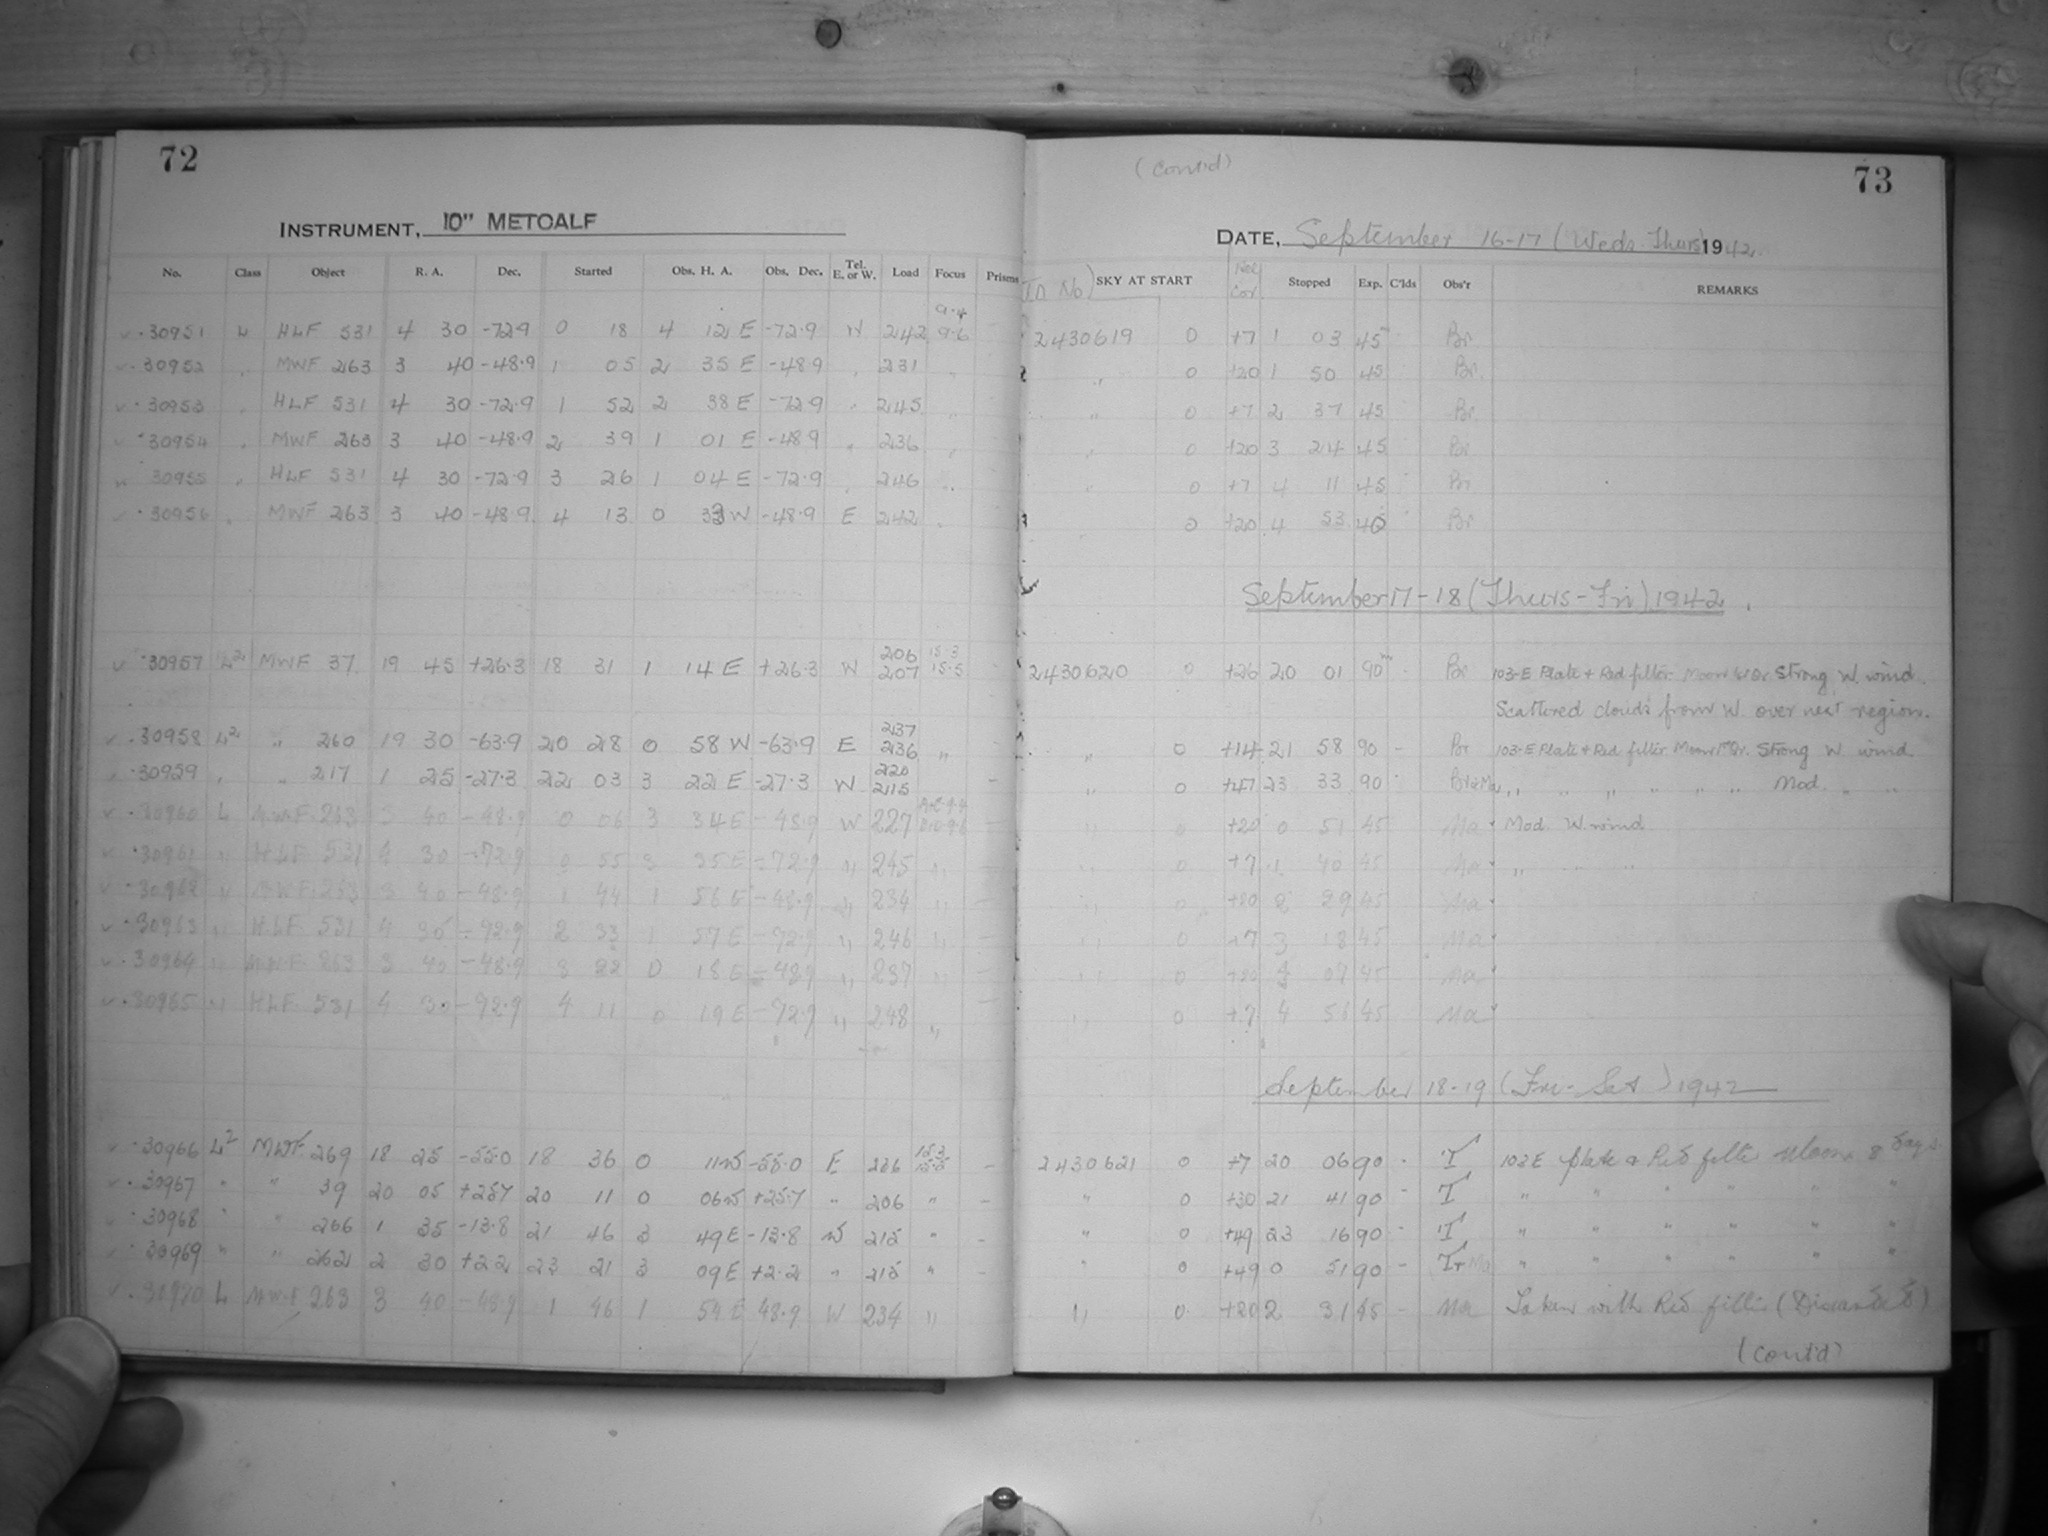 72
INSTRUMENT, 10" METCALF
No. Class Object R. A. Dec. Started Obs. H. A. Obs. Dec. Tel. E. or W. Load Focus Prisms
9.4
30951 L HLF 531 4 30 -72.9 0 18 4 12 E -72.9 W 242 9.6
30952 " MWF 263 3 40 -48.9 1 05 2 35 E -48.9 " 231 "
30953 " HLF 531 4 30 -72.9 1 52 2 38 E -72.9 " 245 "
30954 " MWF 263 3 40 -48.9 2 39 1 01 E -48.9 " 236 "
30955 " HLF 531 4 30 -72.9 3 26 1 04 E -72.9 " 246 "
30956 " MWF 263 3 40 -48.9 4 13 0 33 W -48.9 E 242 "
206 15.3
30957 L2 MWF 37 19 45 +26.3 18 31 1 14 E +26.3 W 207 15.5 -
237
30958 L2 " 260 19 30 -63.9 20 28 0 58 W -63.9 E 236 "
220
30959 " " 217 1 25 -27.3 22 03 3 22 E -27.3 W 215 -
30960 L MWF 263 3 40 -48.9 0 06 3 34 E -48.9 W 227 -
30961 " HLF 531 4 30 -72.9 0 55 3 35 E -72.9 " 245 " -
30962 " MWF 263 3 40 -48.9 1 44 1 56 E -48.9 " 234 " -
30963 " HLF 531 4 30 -72.9 2 33 1 57 E -72.9 " 246 " -
30964 " MWF 263 3 40 -48.9 3 22 0 18 E -48.9 " 237 " -
30965 " HLF 531 4 30 -72.9 4 11 0 19 E -72.9 " 248 " -
15.3
30966 L2 MWF 269 18 25 -55.0 18 36 0 11 W -55.0 E 226 15.5 -
30967 " " 39 20 05 +25.7 20 11 0 06 W +25.7 " 206 " -
30968 " " 266 1 35 -13.8 21 46 3 49 E -13.8 W 215 " -
30969 " " 262 2 30 +2.2 23 21 3 09 E +2.2 " 215 " -
30970 L MWF 263 3 40 -48.9 1 46 1 54 E 48.9 W 234 "
(Cont'd)
73
DATE, September 16-17 (Weds-Thurs) 1942
(J.D. No) SKY AT START Cor. Stopped Exp. C'lds Obs'r REMARKS
2430619 0 +7 1 03 45m Br
" 0 +20 1 50 45 Br.
" 0 +7 2 37 45 Br
" 0 +20 3 24 45 Br
" 0 +7 4 11 45 Br
0 +20 4 53 40 Br
September 17-18 (Thurs-Fri) 1942.
2430620 0 +26 20 01 90m - Br 103-E Plate + Red filter. Moon 1st Qr. Strong W. wind.
Scattered clouds from W. over next region.
" 0 +14 21 58 90 - Br 103-E Plate + Red filter. Moon 1st Qr. Strong W. wind
" 0 +47 23 33 90 Br+Ma " " " " " " Mod. " "
" 0 +20 0 51 45 Ma Mod. W. wind
" 0 +7 1 40 45 Ma " " "
" 0 +20 2 29 45 Ma
" 0 +7 3 18 45 Ma
" 0 +20 4 07 45 Ma
" 0 +7 4 56 45 Ma
September 18-19 (Fri-Sat) 1942
2430621 0 +7 20 06 90 - T 103E plate & Red filter Moon 8 days.
" 0 +30 21 41 90 - T " " " " " "
" 0 +49 23 16 90 - T " " " " " "
" 0 +49 0 51 90 - Tr Ma " " " " " "
" 0 +20 2 31 45 - Ma Taken with Red filter (Discarded)
(Cont'd)